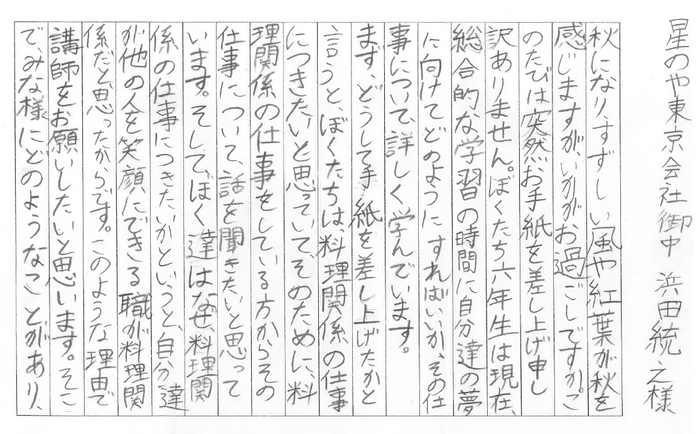 星のや東京会社御中 浜田統之様
秋になりすずしい風や紅葉が秋を
感じますが、いかがお過ごしですか。こ
のたびは突然お手紙を差し上げ申し
訳ありません。ぼくたち六年生は現在、
総合的な学習の時間に自分達の夢
に向けてどのようにすればいいか、その仕
事について、詳しく学んでいます。
まず、どうして手紙を差し上げたかと
言うと、ぼくたちは、料理関係の仕事
につきたいと思っていてそのために、料
理関係の仕事をしている方からその
仕事について、話を聞きたいと思って
います。そして、ぼく達はなぜ、料理関
係の仕事につきたいかというと、自分達
が他の人を笑顔にできる職が料理関
係だと思ったからです。このような理由で
講師をお願いしたいと思います。そこ
で、みな様にどのようなことがあり、